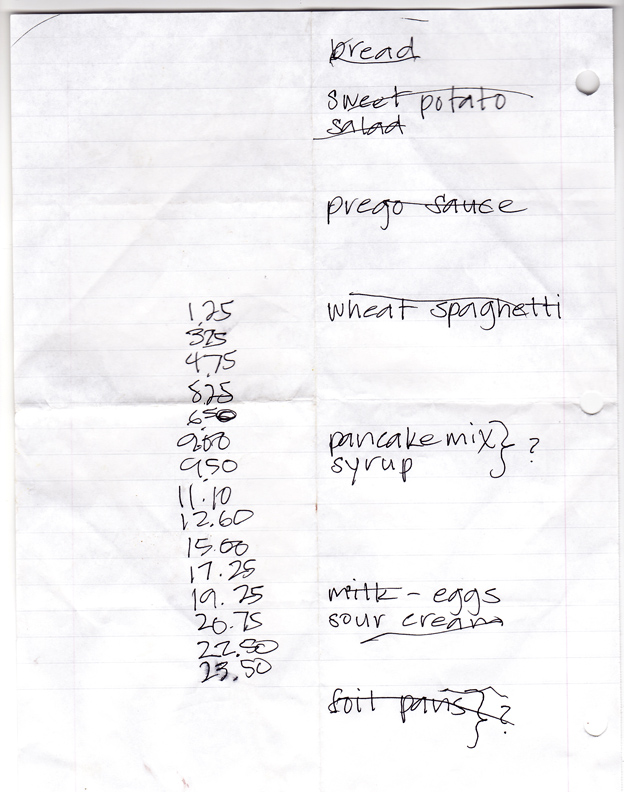 bread
sweet potato
salad
prego sauce
wheat spaghetti
pancake mix } ?
syrup
milk - eggs
sour cream
foil pans } ?
1.25
3.25
4.75
8.25
6.50
9.00
9.50
11.10
12.60
15.00
17.25
19.25
20.75
22.50
23.50